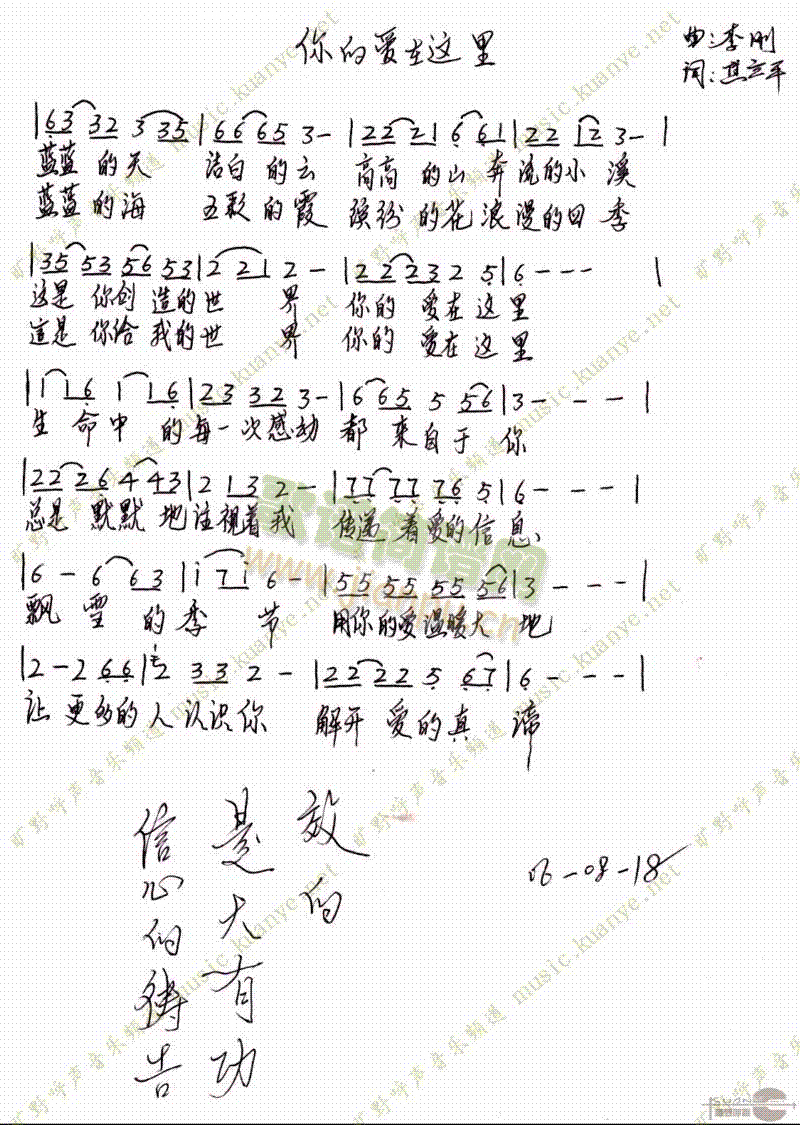 你的爱在这里
曲:李刚
词:其立平
|63 32 3 35|66 65 3-|22 21 6 61|22 12 3-|
蓝蓝 的天 洁白 的云 高高 的山 奔流的小 溪
蓝蓝 的海 五彩 的霞 缤纷 的花 浪漫的四 季
|35 53 56 53|2 21 2-|22 23 2 5|6---|
这是 你创 造的世 界 你的 爱在 这里
這是 你给 我的世 界 你的 爱在 这里
|1 1 6 1 1 6|23 32 3-|6 65 5 56|3---|
生 命中 的每一次感动 都 来自于 你
|22 26 4 43|2 13 2-|77 77 76 5|6---|
总是 默默 地注视着我 传递 着爱的信息
|6-6 63|i 7i 6-|55 55 55 56|3---|
飘 雪 的季 节 用你的爱温暖大 地
|2-2 66|2 33 2-|22 22 5 67|6---|
让 更多的人认识你 解开 爱的真 谛
信心的祷告
是大有功
效的
06-08-18
歌谱简谱网
www.jianpu.cn
旷野呼声音乐频道 music.kuanye.net